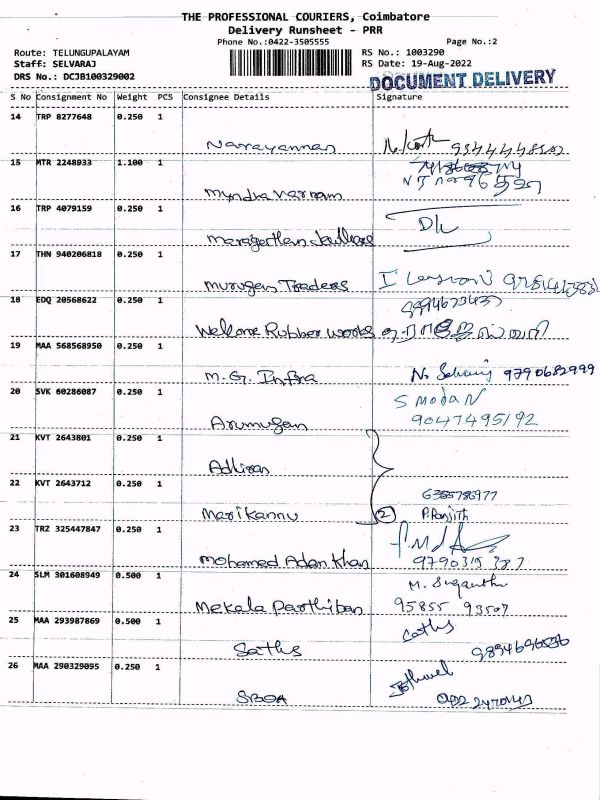 THE PROFESSIONAL COURIERS, Coimbatore
Delivery Runsheet - PRR
Phone No.:0422-3505555 Page No.:2
Route: TELUNGUPALAYAM RS No.: 1003290
Staff: SELVARAJ RS Date: 19-Aug-2022
DRS No.: DCJB100329002 DOCUMENT DELIVERY
S No Consignment No Weight PCS Consignee Details Signature
14 TRP 8277648 0.250 1
Narayannan
15 MTR 2248933 1.100 1
Myndra Varnam
16 TRP 4079159 0.250 1
17 THN 940206818 0.250 1
Murugan Traders
18 EDQ 20568622 0.250 1
Welcome Rubber works
19 MAA 568568950 0.250 1
M.G. Infra 9790682999
20 SVK 60286087 0.250 1
S Modan
Arumugam 9047495192
21 KVT 2643801 0.250 1
Adhiran
22 KVT 2643712 0.250 1
6385786977
Marikannu 2 P. Ranjith
23 TRZ 325447847 0.250 1
Mohamed Adam Khan 9790315387
24 SLM 301608949 0.500 1
M. Suganthi
Mekala Parthiban 95855 93507
25 MAA 293987869 0.500 1
Sathis
26 MAA 290329095 0.250 1
SBOA